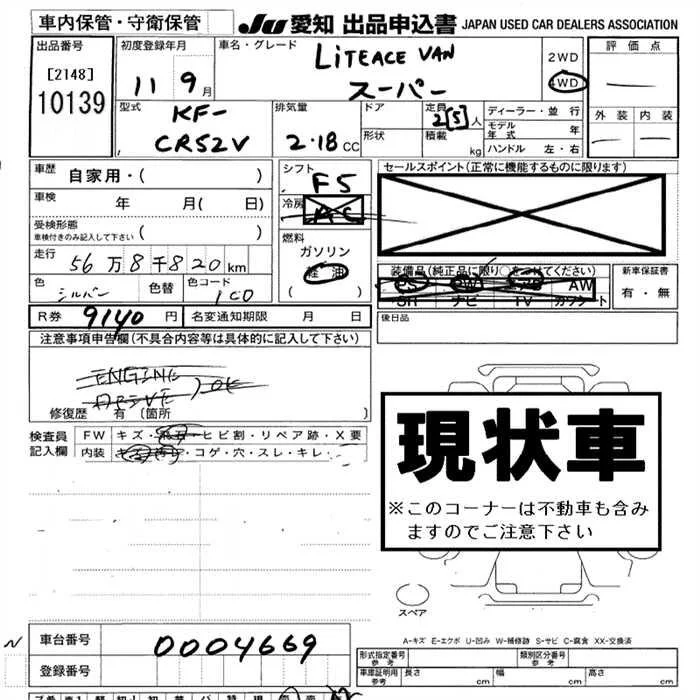 車内保管・守衛保管
JU 愛知 出品申込書 JAPAN USED CAR DEALERS ASSOCIATION
出品番号
[2148]
10139
初度登録年月
11 9月
車名・グレード
LITEACE VAN
スーパー
2WD
4WD
評価点
外装 内装
型式
KF-
CR52V
排気量
2.18 CC
ドア
形状
定員
2[5]人
積載
kg
ディーラー・並行
モデル年式 年
ハンドル 左・右
車歴 自家用・( )
車検 年 月( 日)
受検形態
車検付きのみ記入して下さい ( )
走行 56万8千820km
色 シルバー 色替 色コード 1C0
シフト
F5
冷房
AC
燃料
ガソリン
軽油
( )
セールスポイント(正常に機能するものに限ります)
装備品(純正品に限り○をつけてください)
PS PW AW
SR ナビ TV カワシート
新車保証書
有・無
R券 9140円 名変通知期限 月 日
後日品
注意事項申告欄(不具合内容等は具体的に記入して下さい)
ENGINE
DRIVE ) OK
修復歴 有(箇所 )
検査員
記入欄
FW キズ・飛石・ヒビ割・リペア跡・X要
内装 ・コゲ・穴・スレ・キレ・
現状車
※このコーナーは不動車も含み
ますのでご注意下さい
スペア
A-キズ E-エクボ U-凹み W-補修跡 S-サビ C-腐食 XX-交換済
N 車台番号 0004669
登録番号
形式指定番号
参考
類別区分番号
参考
車庫証明用
参考
長さ cm 幅 cm 高さ cm